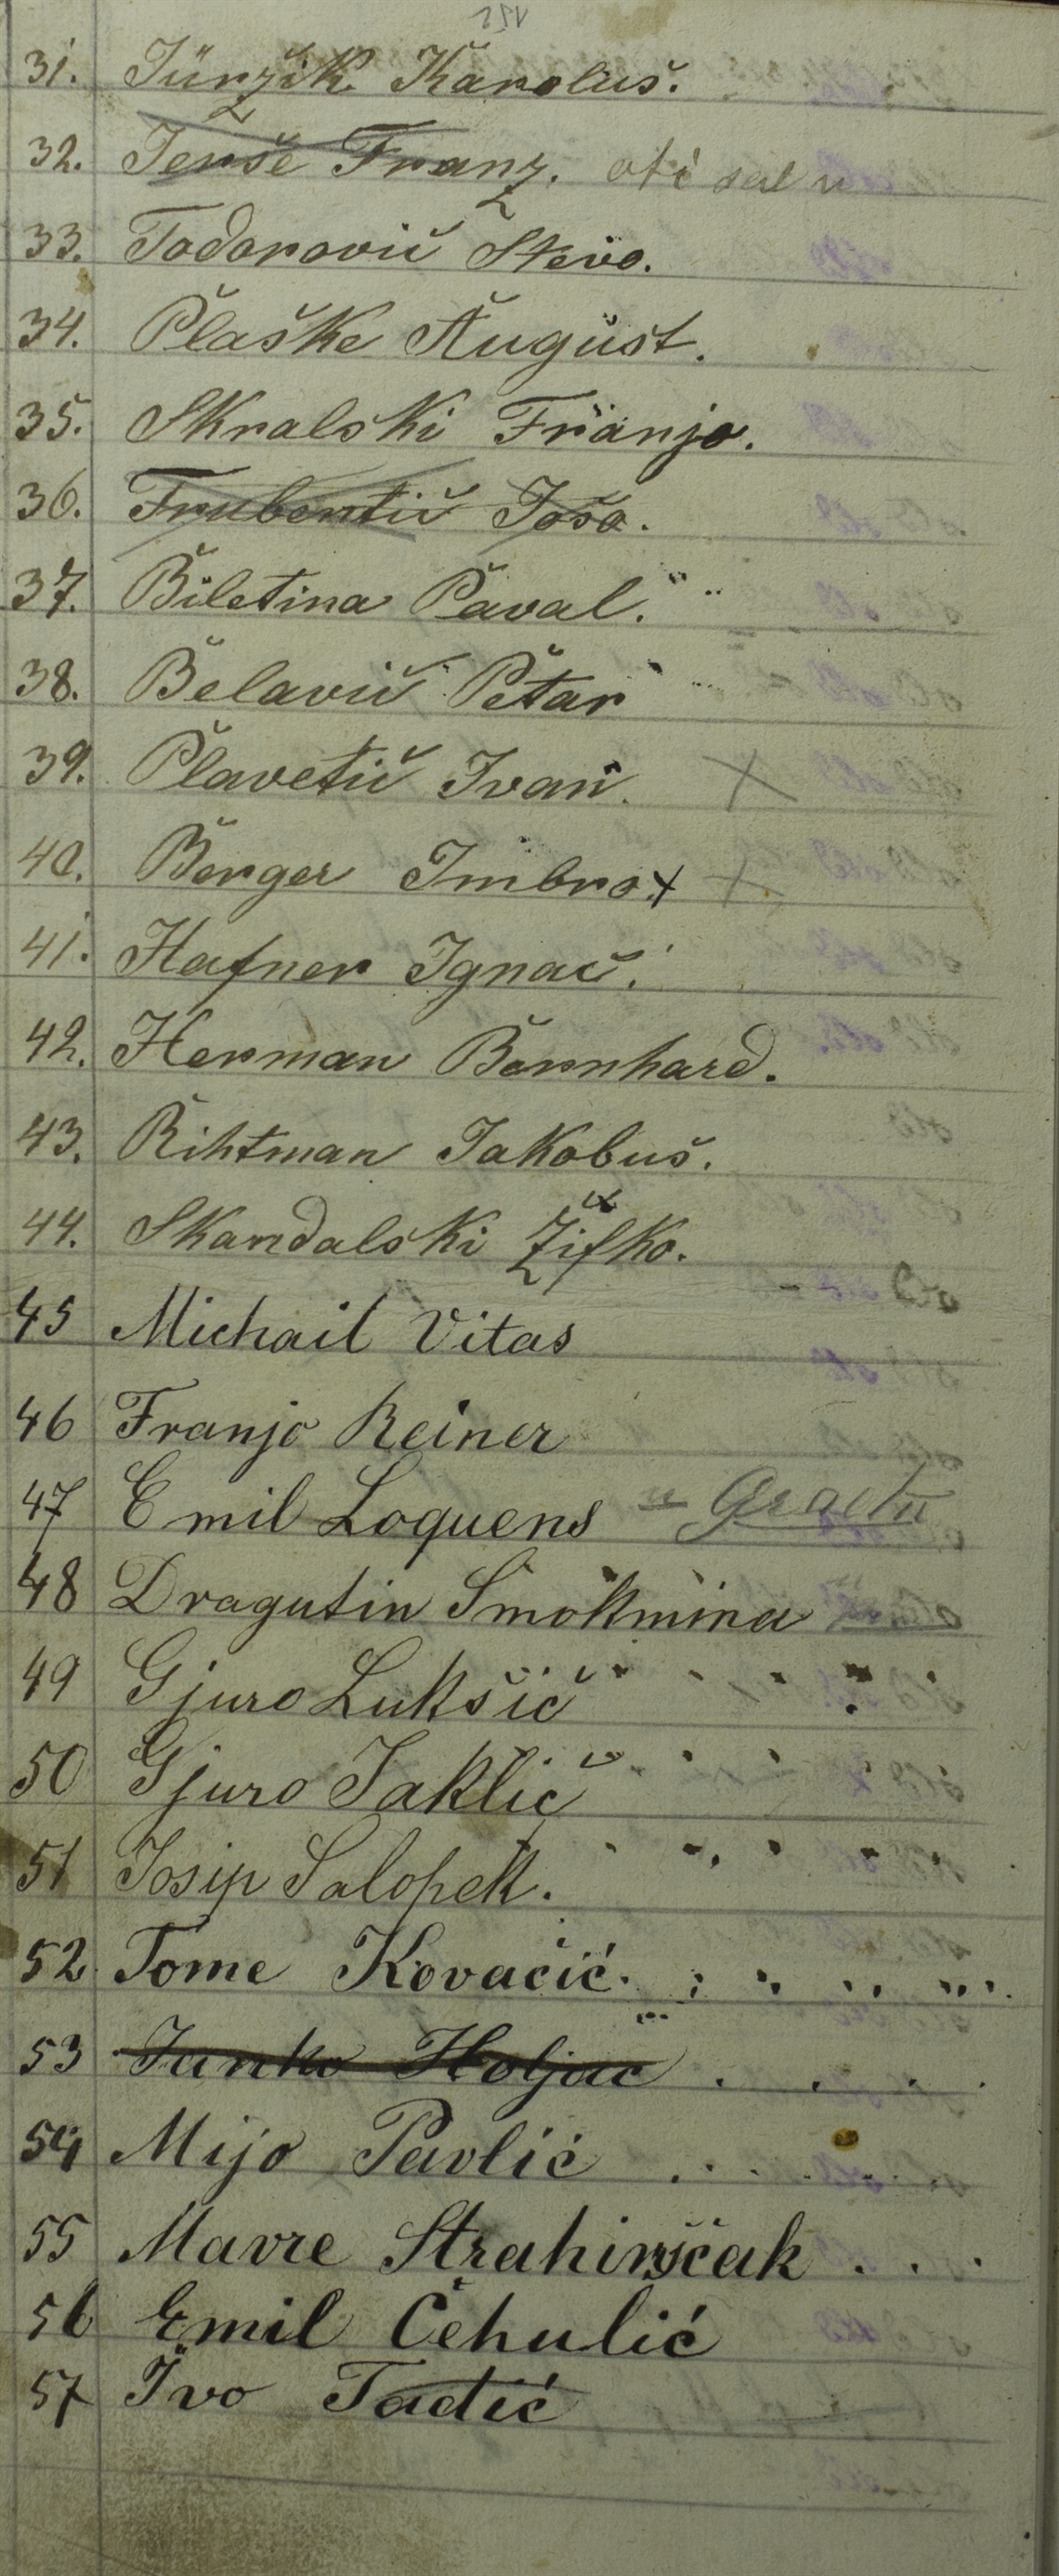 31. Jüržik Karoluš.
32. Jerše Franz. otišal u
33. Todorovič Stevo.
34. Plaške August.
35. Skralski Franjo.
36. Frubentič Joso.
37. Biletina Paval.
38. Belavič Petar
39. Plavetič Ivan. X
40. Berger Imbro. X X
41. Hafner Ignač.
42. Herman Bernhard.
43. Rihtman Jakobuš.
44. Skandalski Žifko.
45 Michail Vitas
46 Franjo Reiner
47 Emil Loquens u Gracu
48 Dragutin Smokmina
49 Gjuro Lukšič
50 Gjuro Jaklič
51 Josip Salopek.
52 Tome Kovačić.
53 Janko Holjac . . . .
54 Mijo Pavlić
55 Mavre Strahinščak . . .
56 Emil Čehulić
57 Ivo Tadić